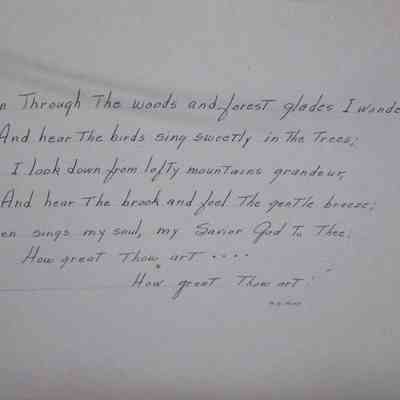 n Through The woods and forest glades I wande
And hear The birds sing sweetly in The Trees;
I look down from lofty mountains grandeur,
And hear The brook and feel The gentle breeze;
en sings my soul, my Savior God To Thee:
How great Thow art ....
How great Thow art!"